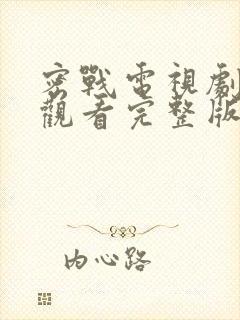 密戰電視劇
觀看完整版
內心路